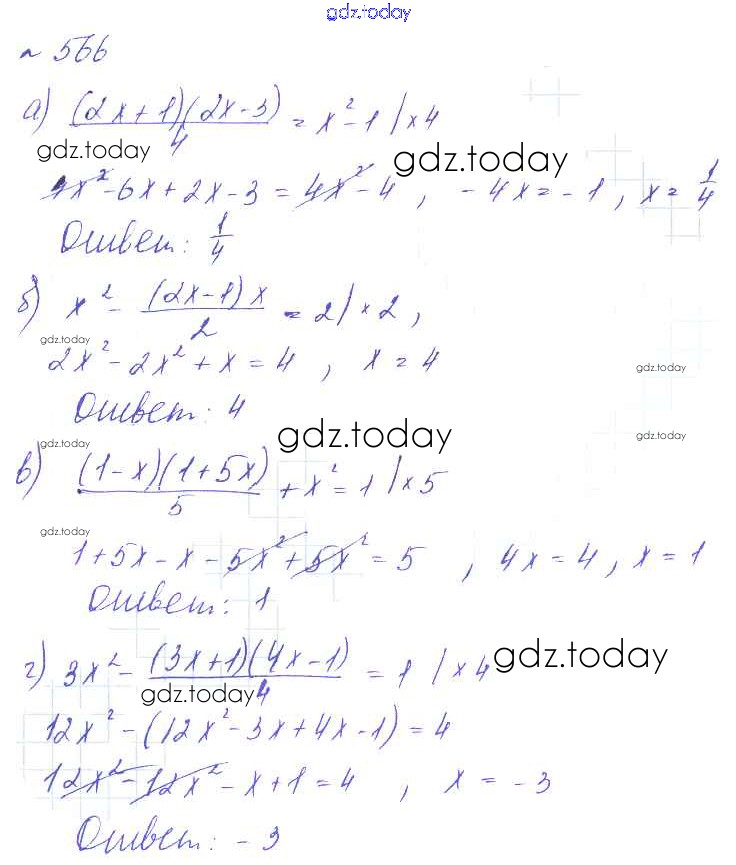 gdz.today
№ 566
а) (2x+1)(2x-3)/4 = x²-1 |×4
gdz.today gdz.today
4x²-6x+2x-3 = 4x²-4, -4x=-1, x=1/4
Ответ: 1/4
б) x² - (2x-1)x/2 = 2 |×2,
gdz.today
2x²-2x²+x=4, x=4
gdz.today
Ответ: 4
gdz.today gdz.today gdz.today
в) (1-x)(1+5x)/5 + x² = 1 |×5
gdz.today
1+5x-x-5x²+5x²=5, 4x=4, x=1
Ответ: 1
г) 3x² - (3x+1)(4x-1)/4 = 1 |×4
gdz.today gdz.today
12x²-(12x²-3x+4x-1)=4
12x²-12x²-x+1=4, x=-3
Ответ: -3